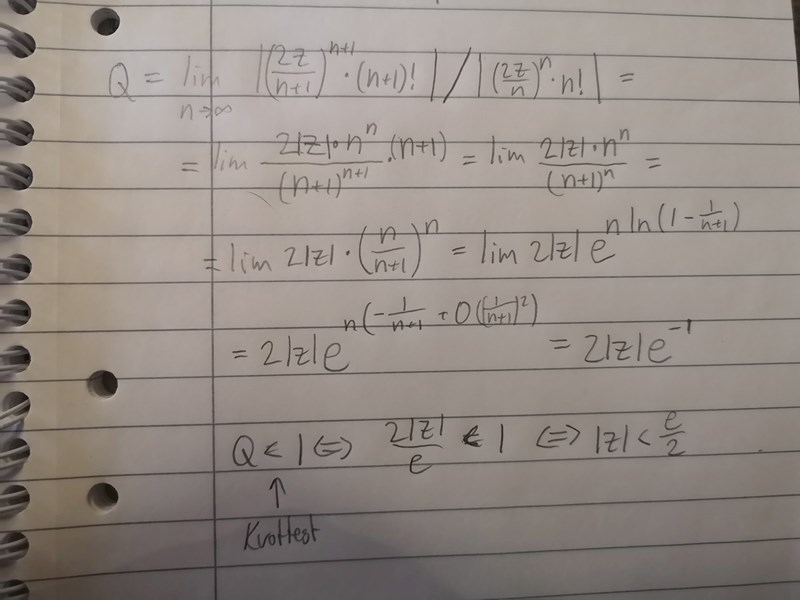 Q = lim n→∞ |(2z/(n+1))^(n+1) · (n+1)!| / |(2z/n)^n · n!| =
= lim (2|z|·n^n)/((n+1)^(n+1)) · (n+1) = lim (2|z|·n^n)/((n+1)^n) =
= lim 2|z| · (n/(n+1))^n = lim 2|z| e^(n ln(1 - 1/(n+1)))
= 2|z| e^(n(-1/(n+1) + O((1/(n+1))^2))) = 2|z| e^(-1)
Q < 1 ⇔ 2|z|/e < 1 ⇔ |z| < e/2
↑
Kvottest